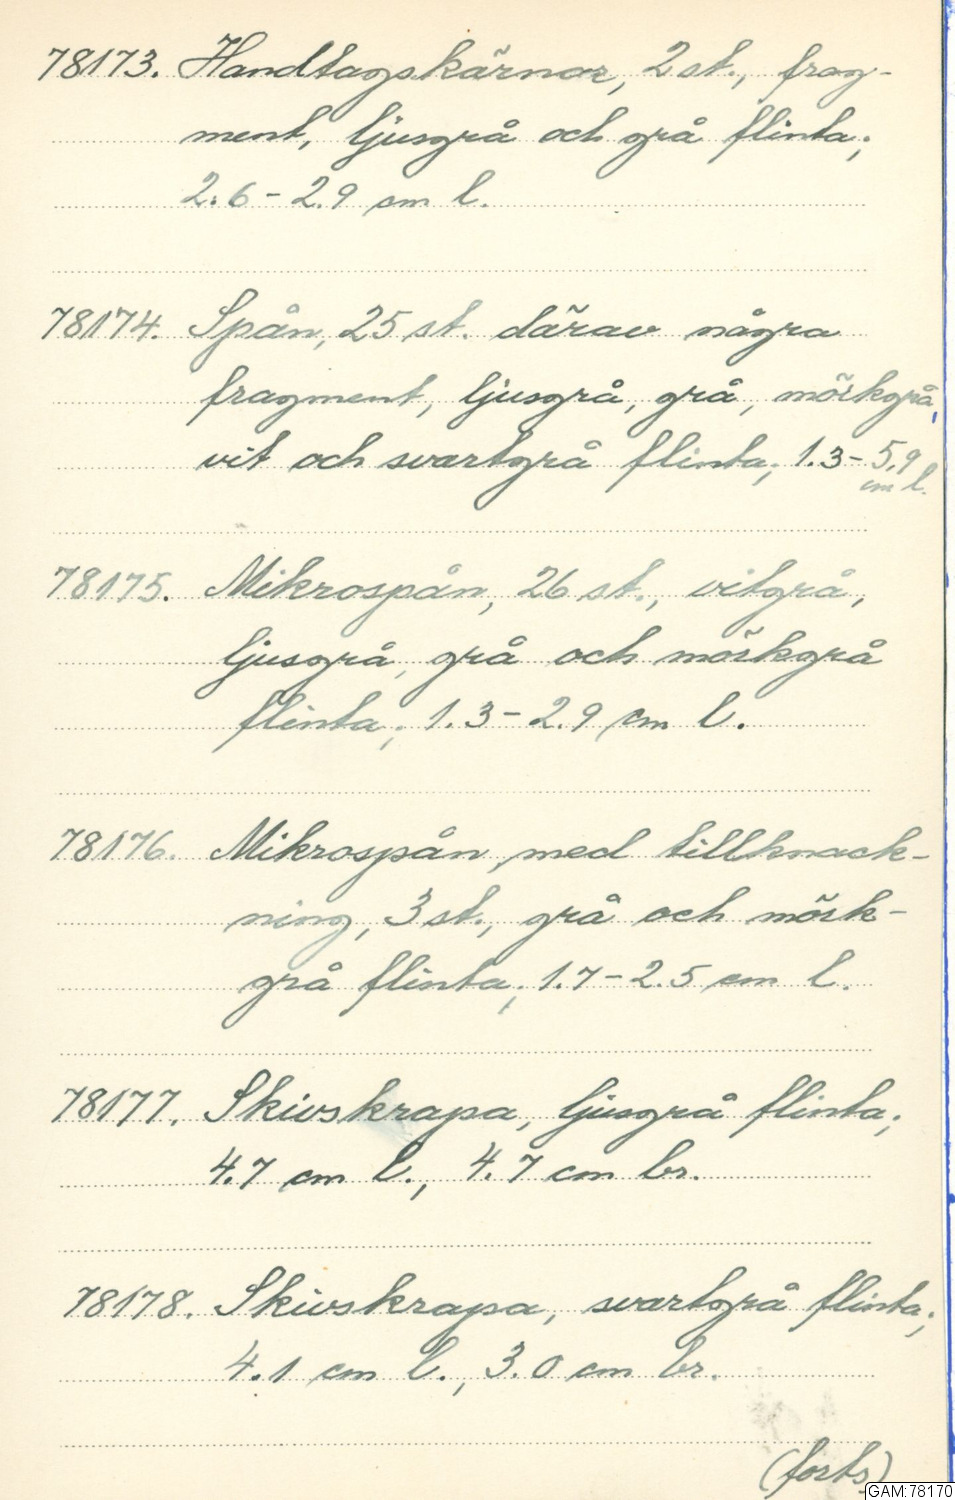 78173. Handtagskärnor, 2 st., frag-
ment, ljusgrå och grå flinta;
2.6 - 2.9 cm l.
78174. Spån, 25 st. därav några
fragment, ljusgrå, grå, mörkgrå,
vit och svartgrå flinta; 1.3 - 5.9
cm l.
78175. Mikrospån, 26 st., vitgrå,
ljusgrå, grå och mörkgrå
flinta; 1.3 - 2.9 cm l.
78176. Mikrospån med tillknack-
ning, 3 st., grå och mörk-
grå flinta; 1.7 - 2.5 cm l.
78177. Skivskrapa, ljusgrå flinta;
4.7 cm l., 4.7 cm br.
78178. Skivskrapa, svartgrå flinta;
4.1 cm l., 3.0 cm br.
(forts)
GAM:78170